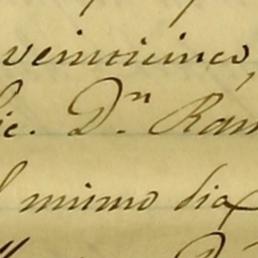 veinticinco,
ic. Dn. Rám
l mismo dia